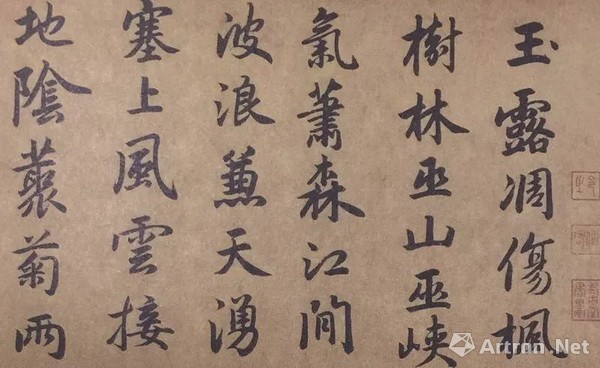 玉露凋傷楓
樹林巫山巫峽
氣蕭森江間
波浪兼天湧
塞上風雲接
地陰藂菊兩
Artron.Net